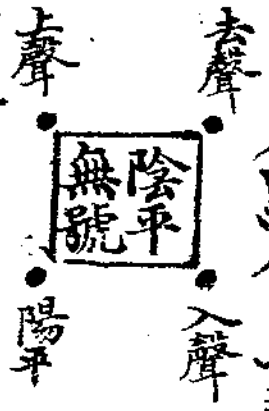 去聲
上聲
陰平
無號
入聲
陽平